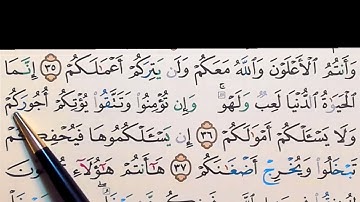 وَأَنتُمُ ٱلْأَعْلَوْنَ وَٱللَّهُ مَعَكُمْ وَلَن يَتِرَكُمْ أَعْمَٰلَكُمْ ٣٥ إِنَّمَا
ٱلْحَيَوٰةُ ٱلدُّنْيَا لَعِبٌ وَلَهْوٌ ۚ وَإِن تُؤْمِنُوا۟ وَتَتَّقُوا۟ يُؤْتِكُمْ أُجُورَكُمْ
وَلَا يَسْـَٔلْكُمْ أَمْوَٰلَكُمْ ٣٦ إِن يَسْـَٔلْكُمُوهَا فَيُحْفِكُمْ
تَبْخَلُوا۟ وَيُخْرِجْ أَضْغَٰنَكُمْ ٣٧ هَٰٓأَنتُمْ هَٰٓؤُلَآءِ